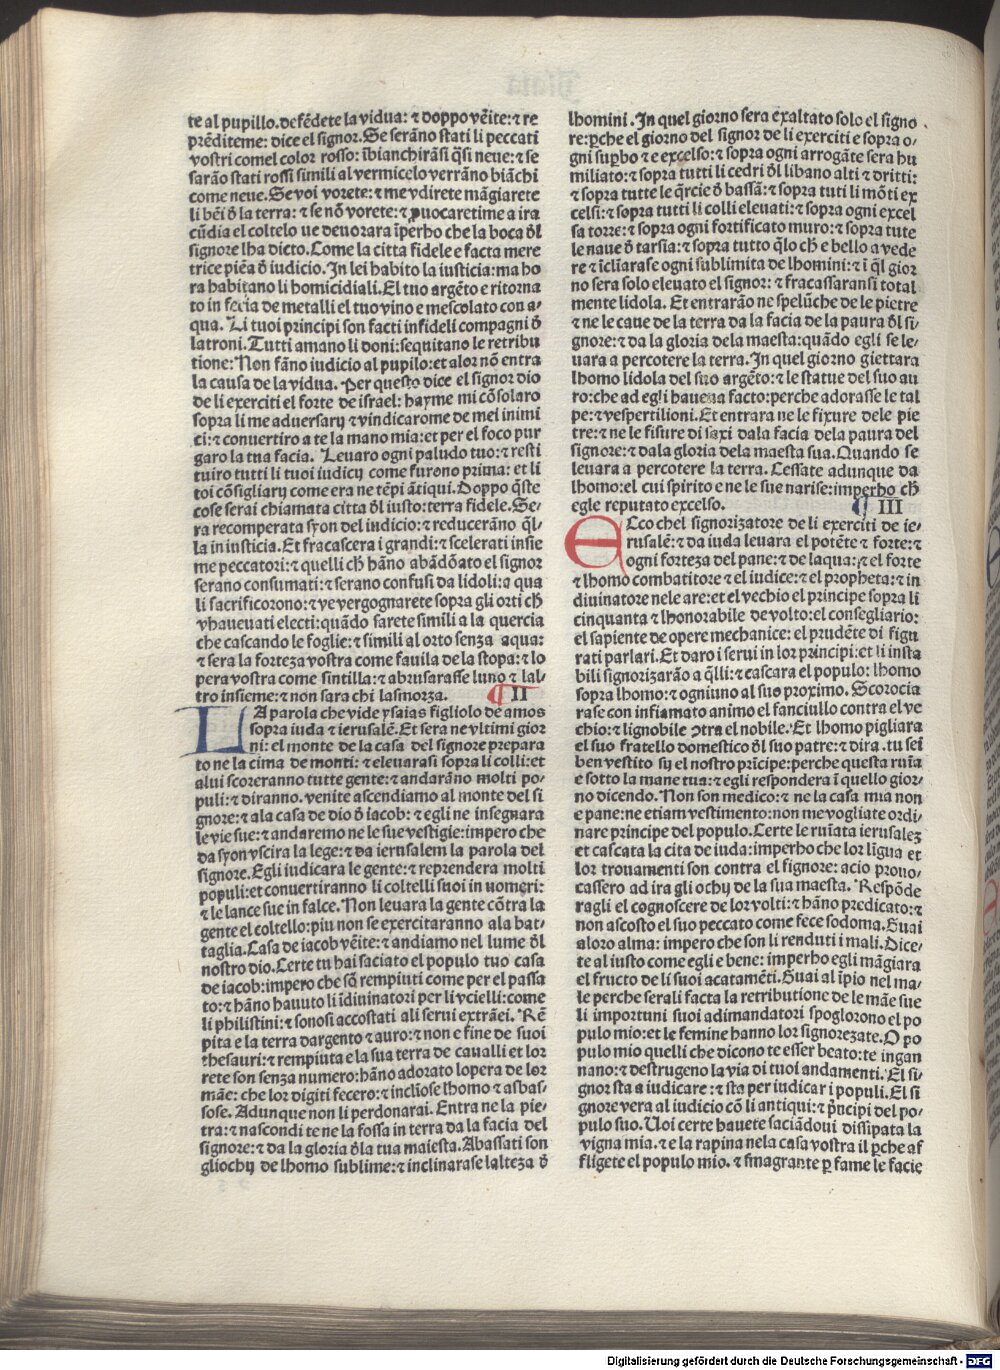 te al pupillo. defēdete la vidua: ⁊ doppo vēite: ⁊ re
prēditeme: dice el signor. Se serāno stati li peccati
vostri comel color rosso: ībianchirāsi q̄si neue: ⁊ se
sarāo stati rossi simili al vermicelo verrāno biāchi
come neue. Se voi vorete: ⁊ me vdirete māgiarete
li bēi ō la terra: ⁊ se nō vorete: ⁊ ꝓuocaretime a ira
cūdia el coltelo ve deuorara īperho che la boca ōl
signore lha dicto. Come la citta fidele e facta mere
trice piēa ō iudicio. In lei habito la iusticia: ma ho
ra habitano li homicidiali. El tuo argēto e ritorna
to in fecia de metalli el tuo vino e mescolato con a-
qua. Li tuoi principi son facti infideli compagni ō
latroni. Tutti amano li doni: sequitano le retribu
tione: Non fāno iudicio al pupilo: et alor nō entra
la causa de la vidua. Per questo dice el signor dio
de li exerciti el forte de israel: hayme mi cōsolaro
sopra li me aduersarij ⁊ vindicarome de mei inimi
ci: ⁊ conuertiro a te la mano mia: et per el foco pur
garo la tua facia. Leuaro ogni paludo tuo: ⁊ resti
tuiro tutti li tuoi iudicij come furono prima: et li
toi cōsigliarij come era ne tēpi ātiqui. Doppo q̄ste
cose serai chiamata citta ōl iusto: terra fidele. Se-
ra recomperata syon del iudicio: ⁊ reducerāno q̄l-
la in iusticia. Et fracascera i grandi: ⁊ scelerati insie
me peccatori: ⁊ quelli ch̄ hāno abādōato el signor
serano consumati: ⁊ serano confusi da lidoli: a qua
li sacrificorono: ⁊ ve vergognarete sopra gli orti ch̄
vhaueuati electi: quādo sarete simili a la quercia
che cascando le foglie: ⁊ simili al orto senza aqua:
⁊ sera la forteza vostra come fauila de la stopa: ⁊ lo
pera vostra come sintilla: ⁊ abrusarasse luno ⁊ lal-
tro insieme: ⁊ non sara chi lasmorza. ¶ II
LA parola che vide ysaias figliolo de amos
sopra iuda ⁊ ierusalē. Et sera ne vltimi gior
ni: el monte de la casa del signore prepara
to ne la cima de monti: ⁊ eleuarasi sopra li colli: et
alui scoreranno tutte gente: ⁊ andarāno molti po-
puli: ⁊ diranno. venite ascendiamo al monte del si
gnore: ⁊ ala casa de dio ō iacob: ⁊ egli ne insegnara
le vie sue: ⁊ andaremo ne le sue vestigie: impero che
da syon vscira la lege: ⁊ da ierusalem la parola del
signore. Egli iudicara le gente: ⁊ reprendera molti
populi: et conuertiranno li coltelli suoi in uomeri:
⁊ le lance sue in falce. Non leuara la gente cōtra la
gente el coltello: piu non se exercitaranno ala bat-
taglia. Casa de iacob vēite: ⁊ andiamo nel lume ōl
nostro dio. Certe tu hai saciato el populo tuo casa
de iacob: impero che sō rempiuti come per el passa
to: ⁊ hāno hauuto li īdiuinatori per li vcielli: come
li philistini: ⁊ sonosi accostati ali serui extrāei. Rē
pita e la terra dargento ⁊ auro: ⁊ non e fine de suoi
thesauri: ⁊ rempiuta e la sua terra de caualli et lor
rete son senza numero: hāno adorato lopera de lor
māe: che lor digiti fecero: ⁊ inclīose lhomo ⁊ asbas-
sose. Adunque non li perdonarai. Entra ne la pie-
tra: ⁊ nascondi te ne la fossa in terra da la facia del
signore: ⁊ da la gloria ōla tua maiesta. Abassati son
gliochij de lhomo sublime: ⁊ inclinarase lalteza ō
lhomini. In quel giorno sera exaltato solo el signo
re: ꝑche el giorno del signor de li exerciti e sopra o-
gni suꝑbo ⁊ e excelso: ⁊ sopra ogni arrogāte sera hu
miliato: ⁊ sopra tutti li cedri ōl libano alti ⁊ dritti:
⁊ sopra tutte le q̄rcie ō bassā: ⁊ sopra tuti li mōti ex
celsi: ⁊ sopra tutti li colli eleuati: ⁊ sopra ogni excel
sa torre: ⁊ sopra ogni fortificato muro: ⁊ sopra tute
le naue ō tarsia: ⁊ sopra tutto q̄lo ch̄ e bello a vede
re ⁊ īclīarase ogni sublimita de lhomini: ⁊ ī q̄l gior
no sera solo eleuato el signor: ⁊ fracassaransi total
mente lidola. Et entrarāo ne spelūche de le pietre
⁊ ne le caue de la terra da la facia de la paura ōl si-
gnore: ⁊ da la gloria de la maesta: quādo egli se le-
uara a percotere la terra. In quel giorno giettara
lhomo lidola del suo argēto: ⁊ le statue del suo au
ro: che ad egli haueua facto: perche adorasse le tal
pe: ⁊ vespertilioni. Et entrara ne le fixure dele pie
tre: ⁊ ne le fisure di saxi dala facia dela paura del
signore: ⁊ dala gloria dela maesta sua. Quando se
leuara a percotere la terra. Cessate adunque da
lhomo: el cui spirito e ne le sue narise: imperho ch̄
egle reputato excelso. ¶ III
ECco chel signorizatore de li exerciti de ie-
rusalē: ⁊ da iuda leuara el potēte ⁊ forte: ⁊
ogni forteza del pane: ⁊ de laqua: ⁊ el forte
⁊ lhomo combatitore ⁊ el iudice: ⁊ el propheta: ⁊ in
diuinatore nele are: et el vechio el principe sopra li
cinquanta ⁊ lhonorabile de volto: el consegliario:
el sapiente de opere mechanice: el prudēte di figu
rati parlari. Et daro i serui in lor principi: et li insta
bili signorizarāo a q̄lli: ⁊ cascara el populo: lhomo
sopra lhomo: ⁊ ogniuno al suo proximo. Scorocia
rase con infiamato animo el fanciullo contra el ve
chio: ⁊ lignobile ↄtra el nobile. Et lhomo pigliara
el suo fratello domestico ōl suo patre: ⁊ dira. tu sei
ben vestito sij el nostro prīcipe: perche questa ruīa
e sotto la mane tua: ⁊ egli respondera ī quello gior-
no dicendo. Non son medico: ⁊ ne la casa mia non
e pane: ne etiam vestimento: non me vogliate ordi-
nare principe del populo. Certe le ruīata ierusalez
et cascata la cita de iuda: imperho che lor līgua et
lor trouamenti son contra el signore: acio prouo-
cassero ad ira gli ochij de la sua maesta. Respōde
ragli el cognoscere de lor volti: ⁊ hāno predicato: ⁊
non ascosto el suo peccato come fece sodoma. Guai
aloro alma: impero che son li renduti i mali. Dice-
te al iusto come egli e bene: imperho egli māgiara
el fructo de li suoi acatamēti. Guai al īpio nel ma-
le perche serali facta la retributione de le māe sue
li importuni suoi adimandatori spoglorono el po
pulo mio: et le femine hanno lor signorezate. O po
pulo mio quelli che dicono te esser beato: te ingan
nano: ⁊ destrugeno la via di tuoi andamenti. El si-
gnor sta a iudicare: ⁊ sta per iudicar i populi. El si
gnore vera al iudicio cō li antiqui: ⁊ p̄ncipi del po-
pulo suo. Uoi certe hauete saciādoui dissipata la
vigna mia. ⁊ e la rapina nela casa vostra il ꝑche af
fligete el populo mio. ⁊ smagrante ꝑ fame le facie
Digitalisierung gefördert durch die Deutsche Forschungsgemeinschaft - DFG